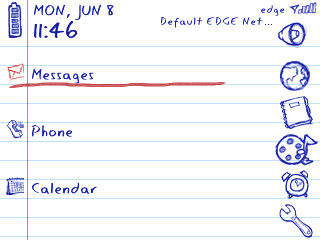 MON, JUN 8
edge
11:46
Default EDGE Net...
Messages
Phone
Calendar